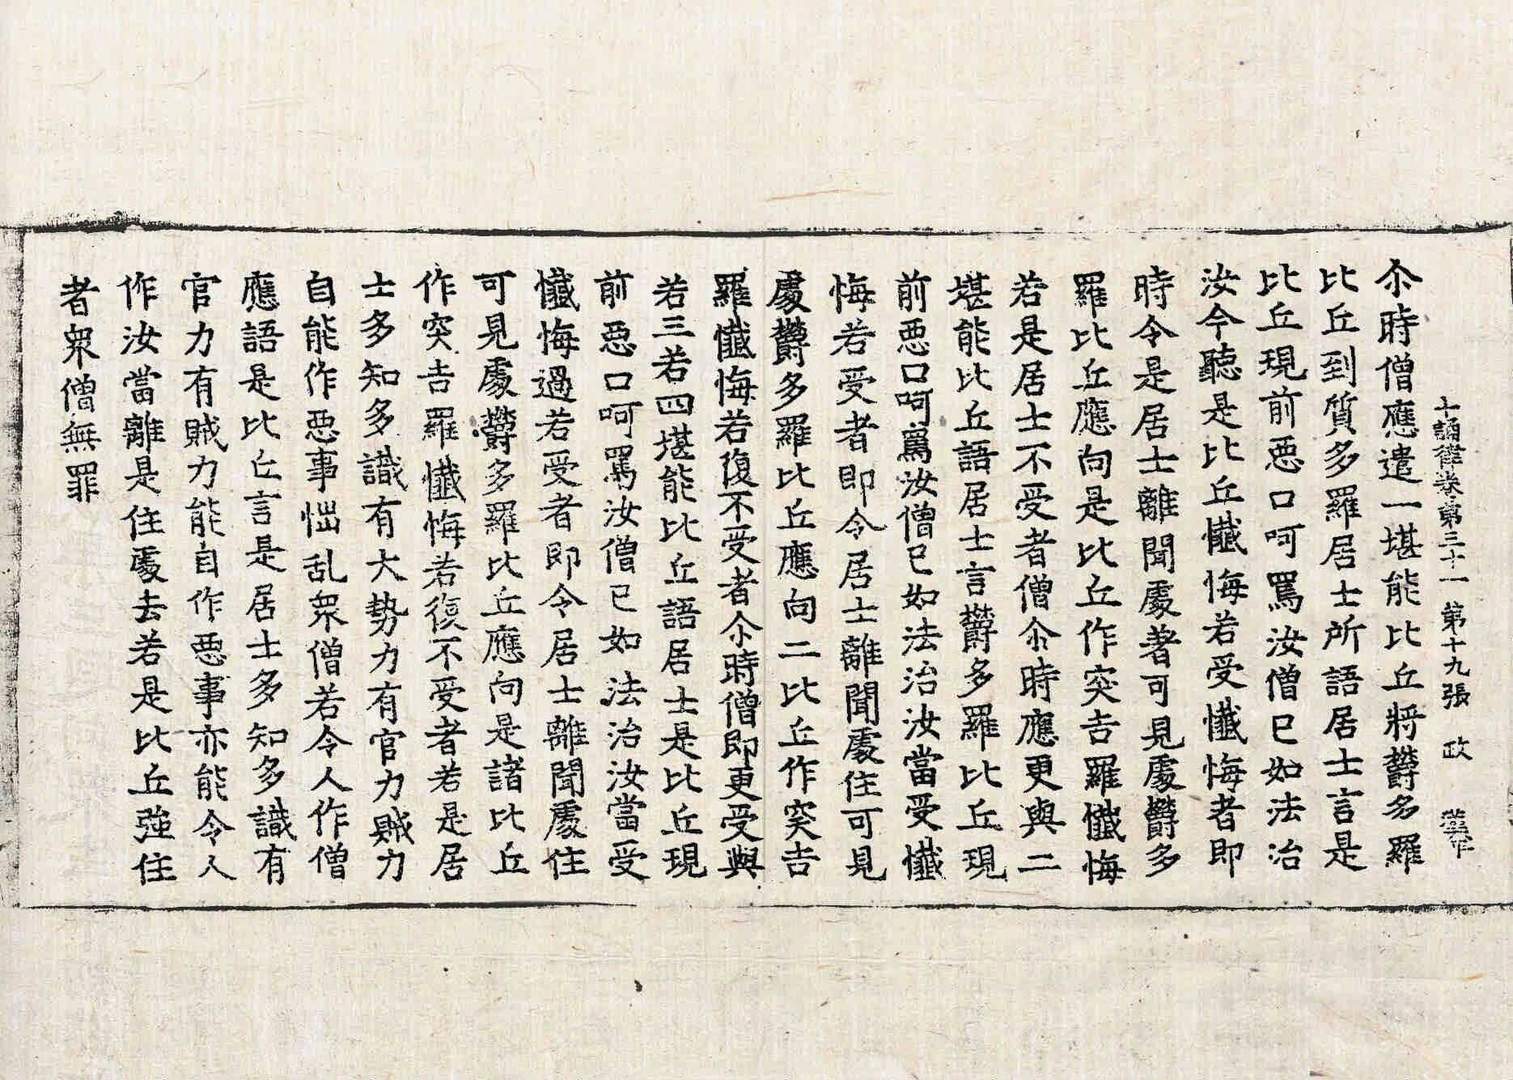 十誦律卷第三十一 第十九張 政
尒時僧應遣一堪能比丘將欝多羅
比丘到質多羅居士所語居士言是
比丘現前悪口呵罵汝僧已如法治
汝今聽是比丘懺悔若受懺悔者即
時令是居士離聞處著可見處欝多
羅比丘應向是比丘作突吉羅懺悔
若是居士不受者僧尒時應更與二
堪能比丘語居士言欝多羅比丘現
前悪口呵罵汝僧已如法治汝當受懺
悔若受者即令居士離聞處住可見
處欝多羅比丘應向二比丘作突吉
羅懺悔若復不受者尒時僧即更受與
若三若四堪能比丘語居士是比丘現
前悪口呵罵汝僧已如法治汝當受
懺悔過若受者即令居士離聞處住
可見處欝多羅比丘應向是諸比丘
作突吉羅懺悔若復不受者若是居
士多知多識有大勢力有官力賊力
自能作悪事惱乱衆僧若令人作僧
應語是比丘言是居士多知多識有
官力有賊力能自作悪事亦能令人
作汝當離是住處去若是比丘強住
者衆僧無罪